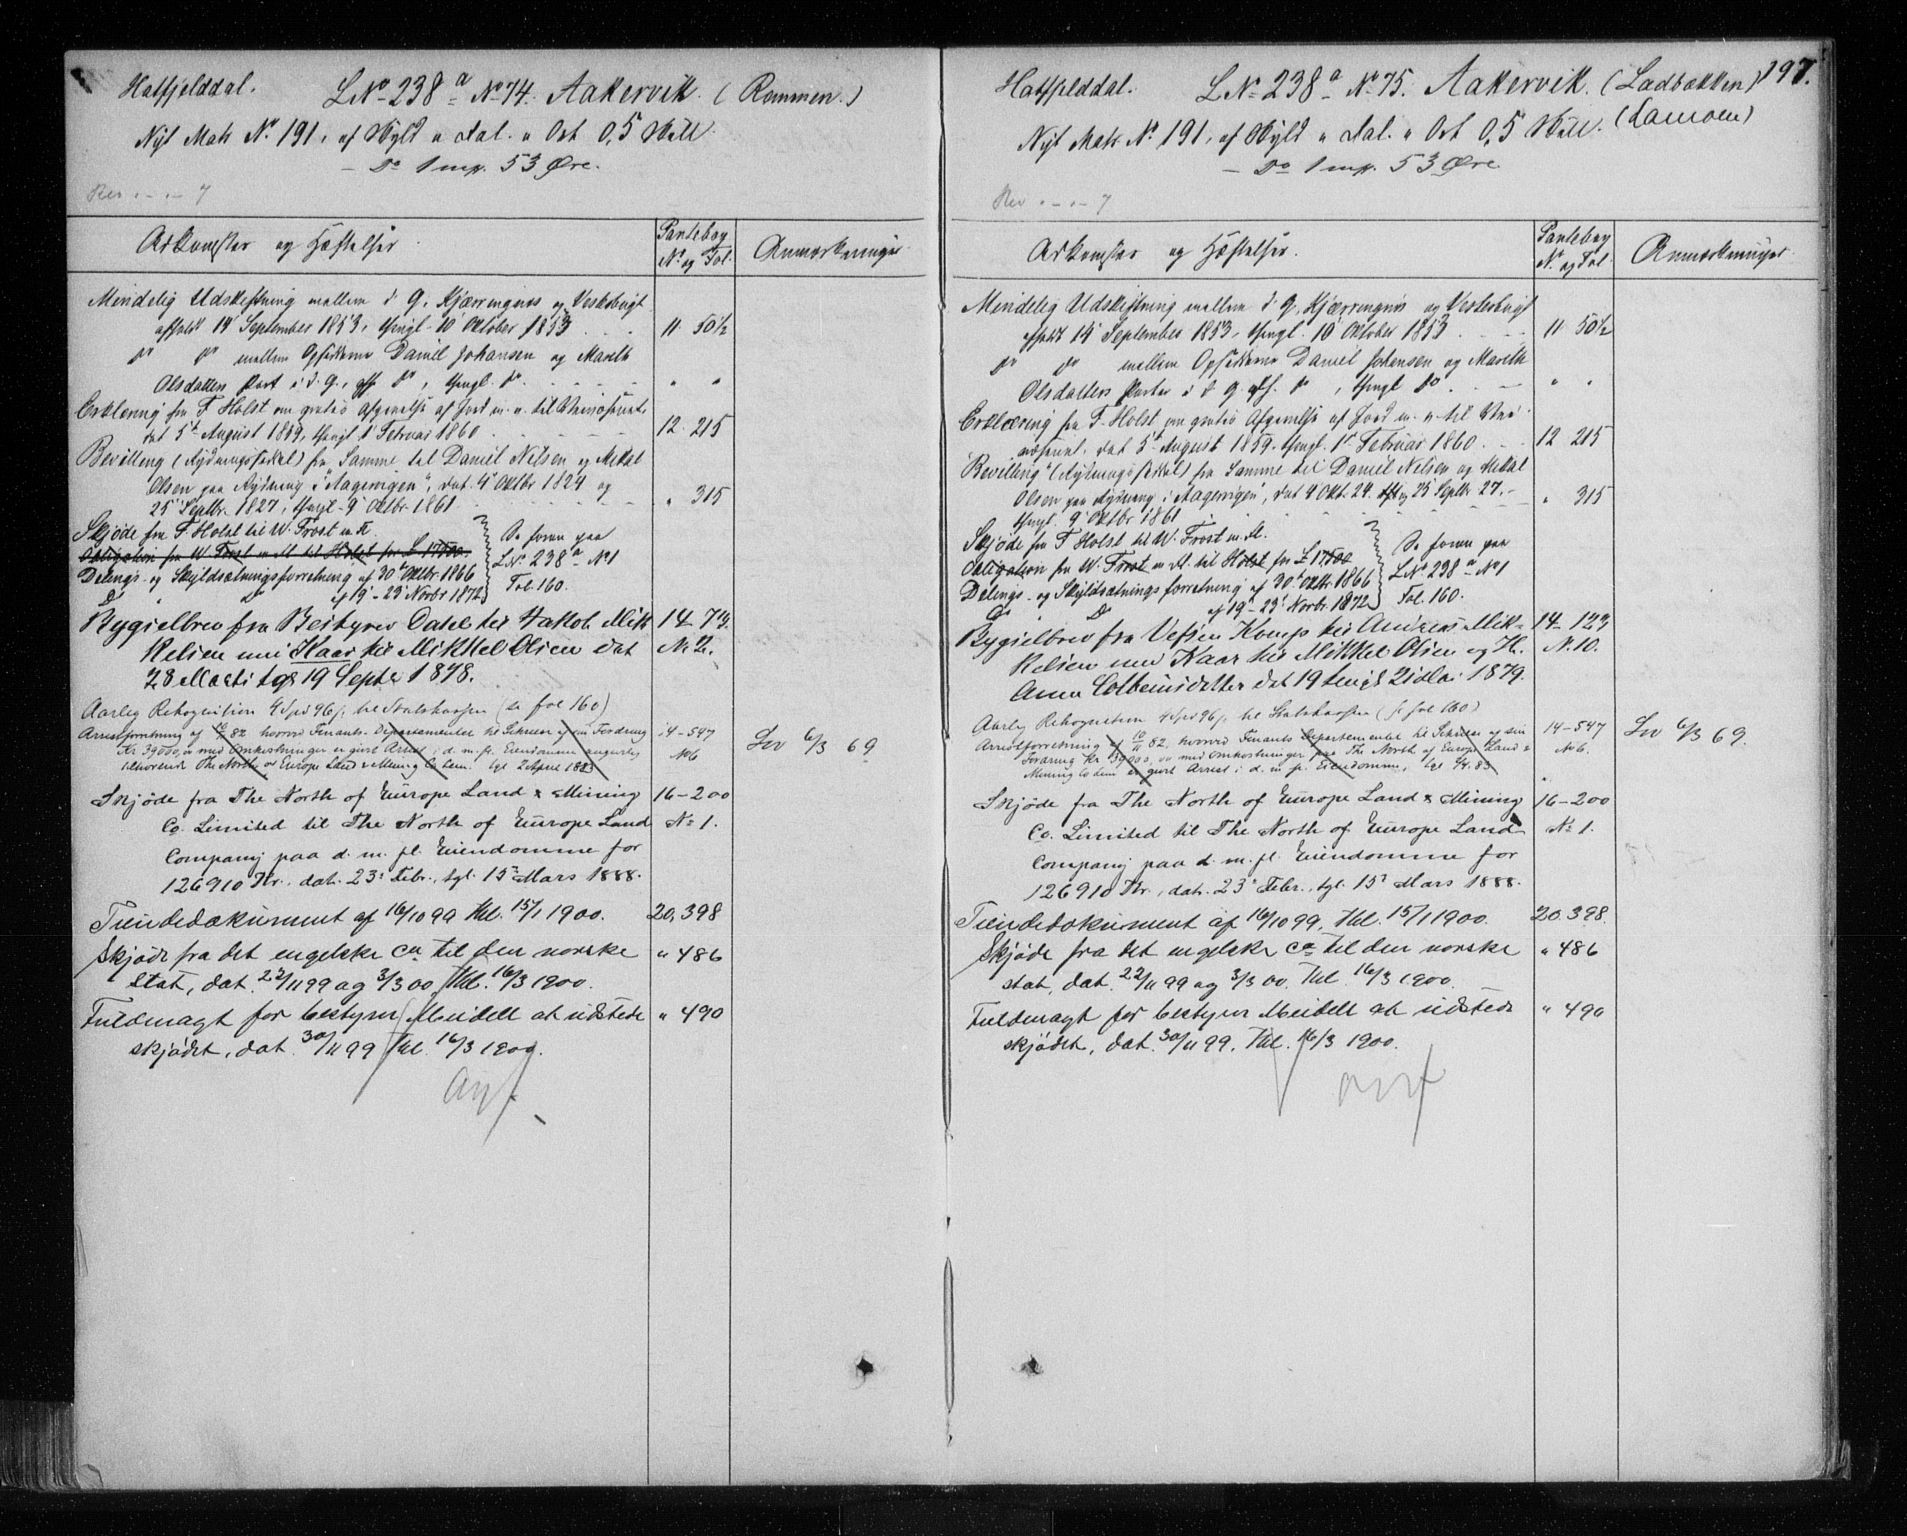 Hatfjelddal. LNo 238a No 74. Aakervik. (Rommen.)
Nyt Matr No. 191, af Skyld " Dal. " Ort 0,5 Skill.
- Do 1 mrk. 53 Øre.
Rev . - . - 7
Adkomster og Hæftelser.
Pantebog
No. og Fol.
Anmærkninger
Mindelig Udskiftning mellem d. G. Kjærringnes og Vesterbugt
afholdt 14 September 1853, thingl. 10 Oktober 1853 . . . 11. 50 1/2
Do Do mellem Opsidderne Daniel Johansen og Mareth
Olsdatters Part i d. G., afh. Do, thingl. Do. . . . " "
Erklæring fra F. Holst om gratis Afgivelse af Jord m. v. til Præsteenk.
dat 5t August 1859, thingl. 1 Februar 1860 . . . 12. 215
Bevilling (Rydningsseddel) fra Samme til Daniel Nilsen og Mikal
Olsen paa Rydning i "Aagervigen", dat. 4 Oktbr 1824 og
25 Septbr. 1827, thingl. 9 Oktbr. 1861 . . . " 315
Skjøde fra F. Holst til W. Frost m. fl.
Obligation fra W. Frost m. fl. til Holst for £ 17500.
Delings- og Skyldsætningsforretning af 30t Oktbr. 1866
Do Do af 19 - 23 Novbr 1872
Se foran paa
LNo 238a No 1
Fol. 160.
Bygselbrev fra Bestyrer Dahl til Jakob Mik- 14 - 73.
kelsen med Kaar til Mikkel Olsen dat No. 2.
28 Marts tgl 19 Septr 1878.
Aarlig Rekognition 4 Spd 96 s. til Statskassen (se fol 160)
Arrestforretning af 16/11 82 hvorved Finants-Departementet til Sikring af sin Fordring 14 - 547
Kr 39000, m med Omkostninger er gjort Arrest i d. m. fl. Eiendomme No 6
tilhørende The North of Europe Land & Mining Co Lim. tgl. 2 April 1883
6/3 69
Skjøde fra The North of Europe Land & Mining 16 - 200
Co. Limited til The North of Europe Land No 1.
Company paa d. m. fl. Eiendomme for
126910 Kr., dat. 23 Febr., tgl. 15 Mars 1888.
Tiendedokument af 16/10 99 thl. 15/1 1900. 20. 398
Skjøde fra det engelske Co til den norske " 486
Stat, dat. 22/11 99 og 3/3 00 thl. 16/3 1900.
Fuldmagt for bestyrer Meidell at udstede " 490
skjødet, dat. 30/11 99 thl. 16/3 1900.
197.
Hatfjelddal. LNo 238a No 75. Aakervik. (Ladbakken)
(Lamoen)
Nyt Matr No. 191, af Skyld " Dal. " Ort 0,5 Skill.
- Do 1 mrk. 53 Øre
Rev . - . - 7
Adkomster og Hæftelser.
Pantebog
No. og Fol.
Anmærkninger
Mindelig Udskiftning mellem d. G. Kjærringnes og Vesterbugt
afholdt 14 September 1853, thingl. 10 Oktober 1853 . . . 11 50 1/2
Do Do mellem Opsidderne Daniel Johansen og Mareth
Olsdatters Parter i d. G. afh. Do, thingl. Do . . . " "
Erklæring fra F. Holst om gratis Afgivelse af Jord m. v. til Præ-
steenk. dat. 5t August 1859. thingl. 1t Februar 1860 . . . 12 215
Bevilling (Rydningsseddel) fra Samme til Daniel Nilsen og Mikal
Olsen paa Rydning i "Aagervigen", dat 4 Okt. 24. og 25 Septbr. 27. - " 315
thingl. 9 Oktbr 1861
Skjøde fra F. Holst til W. Frost m. fl.
Obligation fra W. Frost m. fl. til Holst for £ 17500
Delings- og Skyldsætningsforretning af 30t Oktbr. 1866
Do Do af 19 - 23 Novbr. 1872
Se foran paa
LNo 238a No 1
Fol. 160.
Bygselbrev fra Vefsen Komp til Andreas Mik- 14 - 123
kelsen med Kaar til Mikkel Olsen og H. No. 10.
Anna Colbeinsdatter dat 19 tingl 21 Mai 1879.
Aarlig Rekognition 4 Spd 96 s. til Statskassen (se fol 160)
Arrestforretning af 16/11 82, hvorved Finants Departementet til Sikring af sin 14 - 547
Fordring Kr 39000, m med Omkostninger paa The North of Europe Land & No 6.
Mining Co Lim er gjort Arrest i d. m. fl. Eiendomme, tgl 2/4 83
6/3 69.
Skjøde fra The North of Europe Land & Mining 16 - 200
Co. Limited til The North of Europe Land No 1.
Company paa d. m. fl. Eiendomme for
126910 Kr., dat. 23 Febr., tgl. 15 Mars 1888.
Tiendedokument af 16/10 99, thl. 15/1 1900. 20. 398.
Skjøde fra det engelske Co til den norske " 486
stat, dat. 22/11 99 og 3/3 00. Thl. 16/3 1900.
Fuldmagt for bestyrer Meidell at udstede " 490
skjødet, dat. 30/11 99. Thl. 16/3 1900.